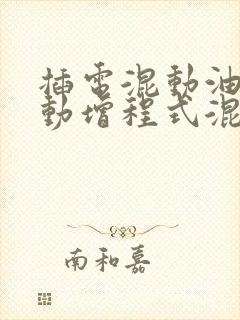 插电混動油
動增程式混
南和嘉